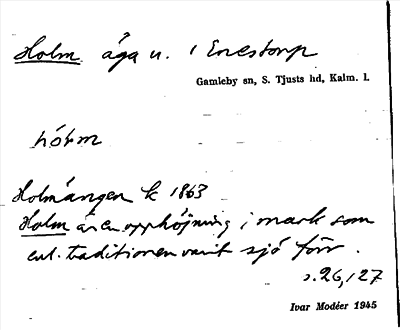 Holm äga u. i Enestorp
Gamleby sn, S. Tjusts hd, Kalm. l.
hórm
Holmängen k 1863
Holm är en upphöjning i mark som
enl. traditionen varit sjö förr.
s. 26, 127
Ivar Modéer 1945